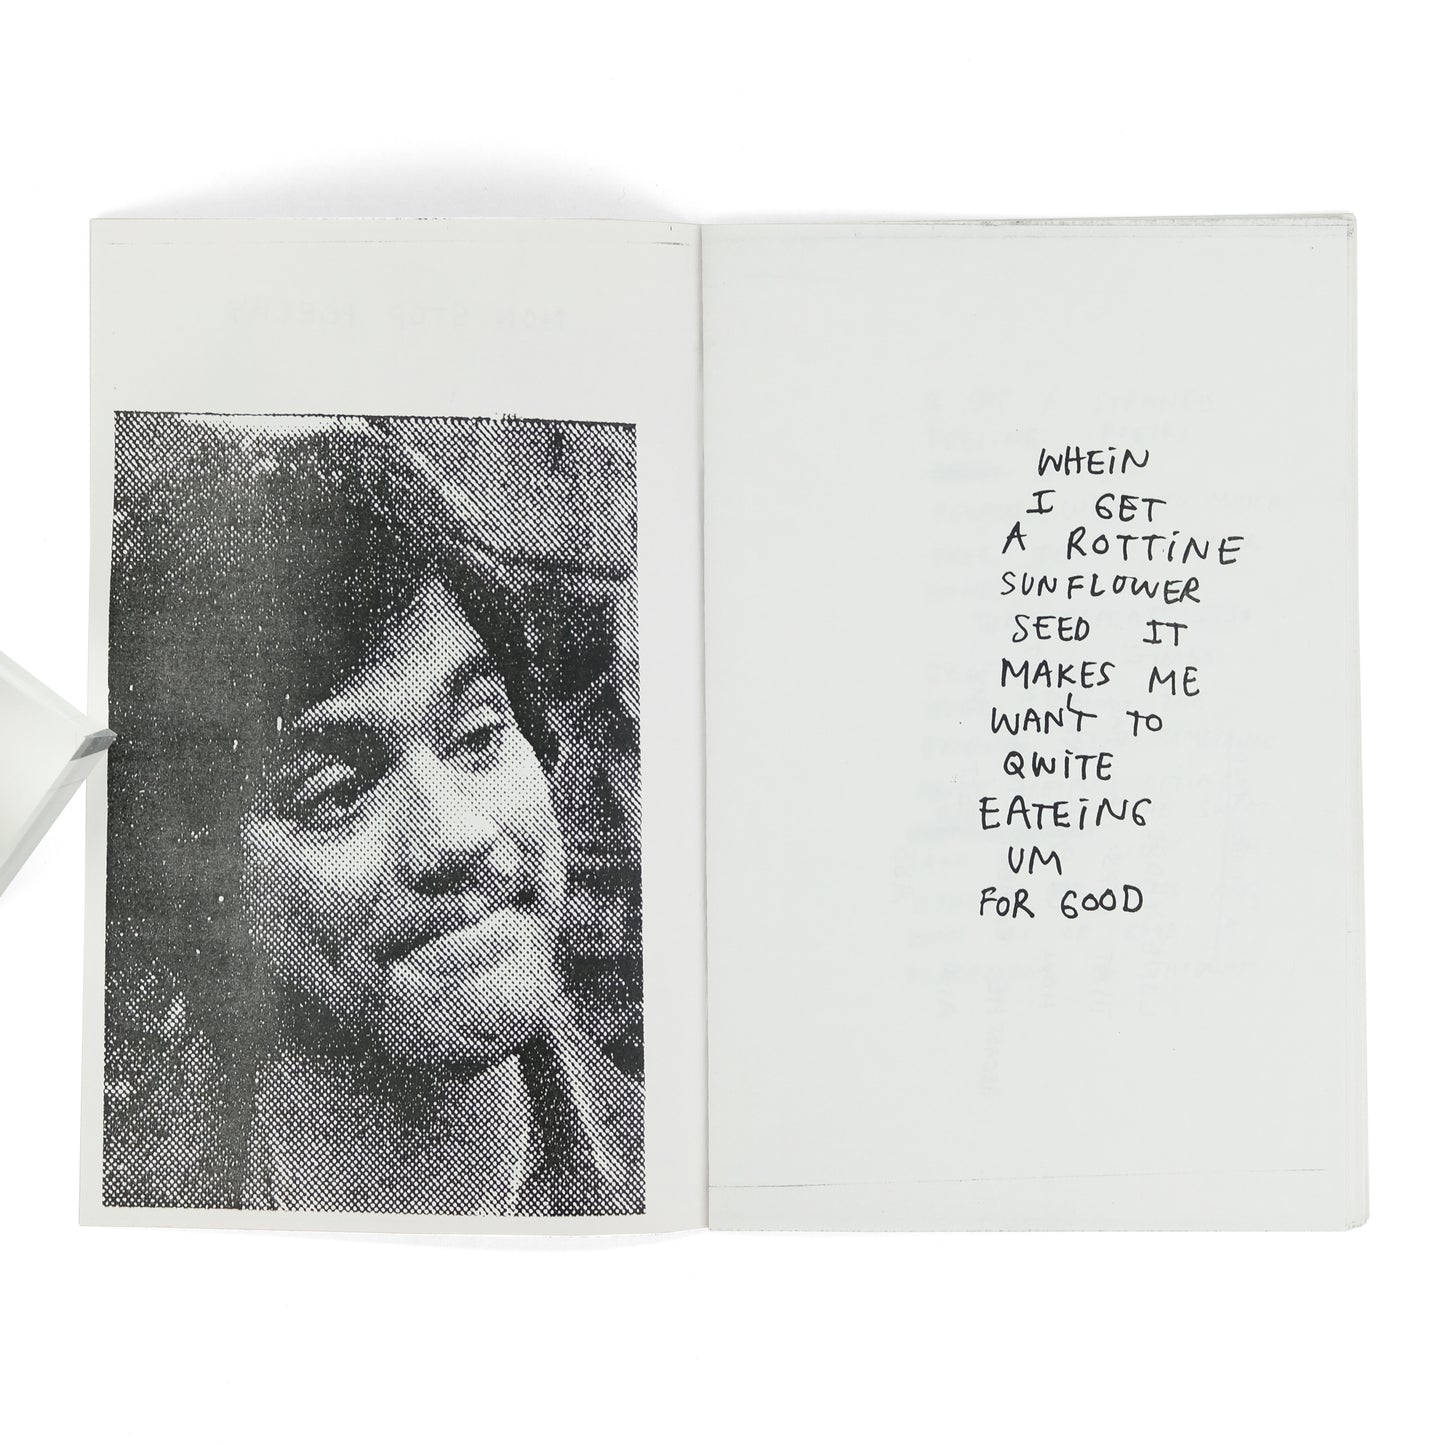 NON STOP POEMS
WHEiN
I GET
A ROTTiNE
SUNFLOWER
SEED IT
MAKES ME
WAN'T TO
QWiTE
EATEiNG
UM
FOR GOOD